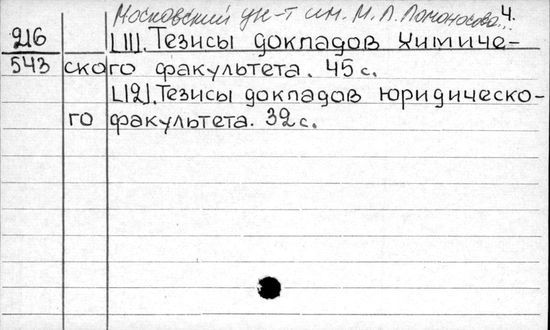 Московский ун-т им. М.Л. Ломоносова... 4.
216 [11]. Тезисы докладов химиче-
543 ского факультета. 45 с.
[12]. Тезисы докладов юридическо-
го факультета. 32 с.